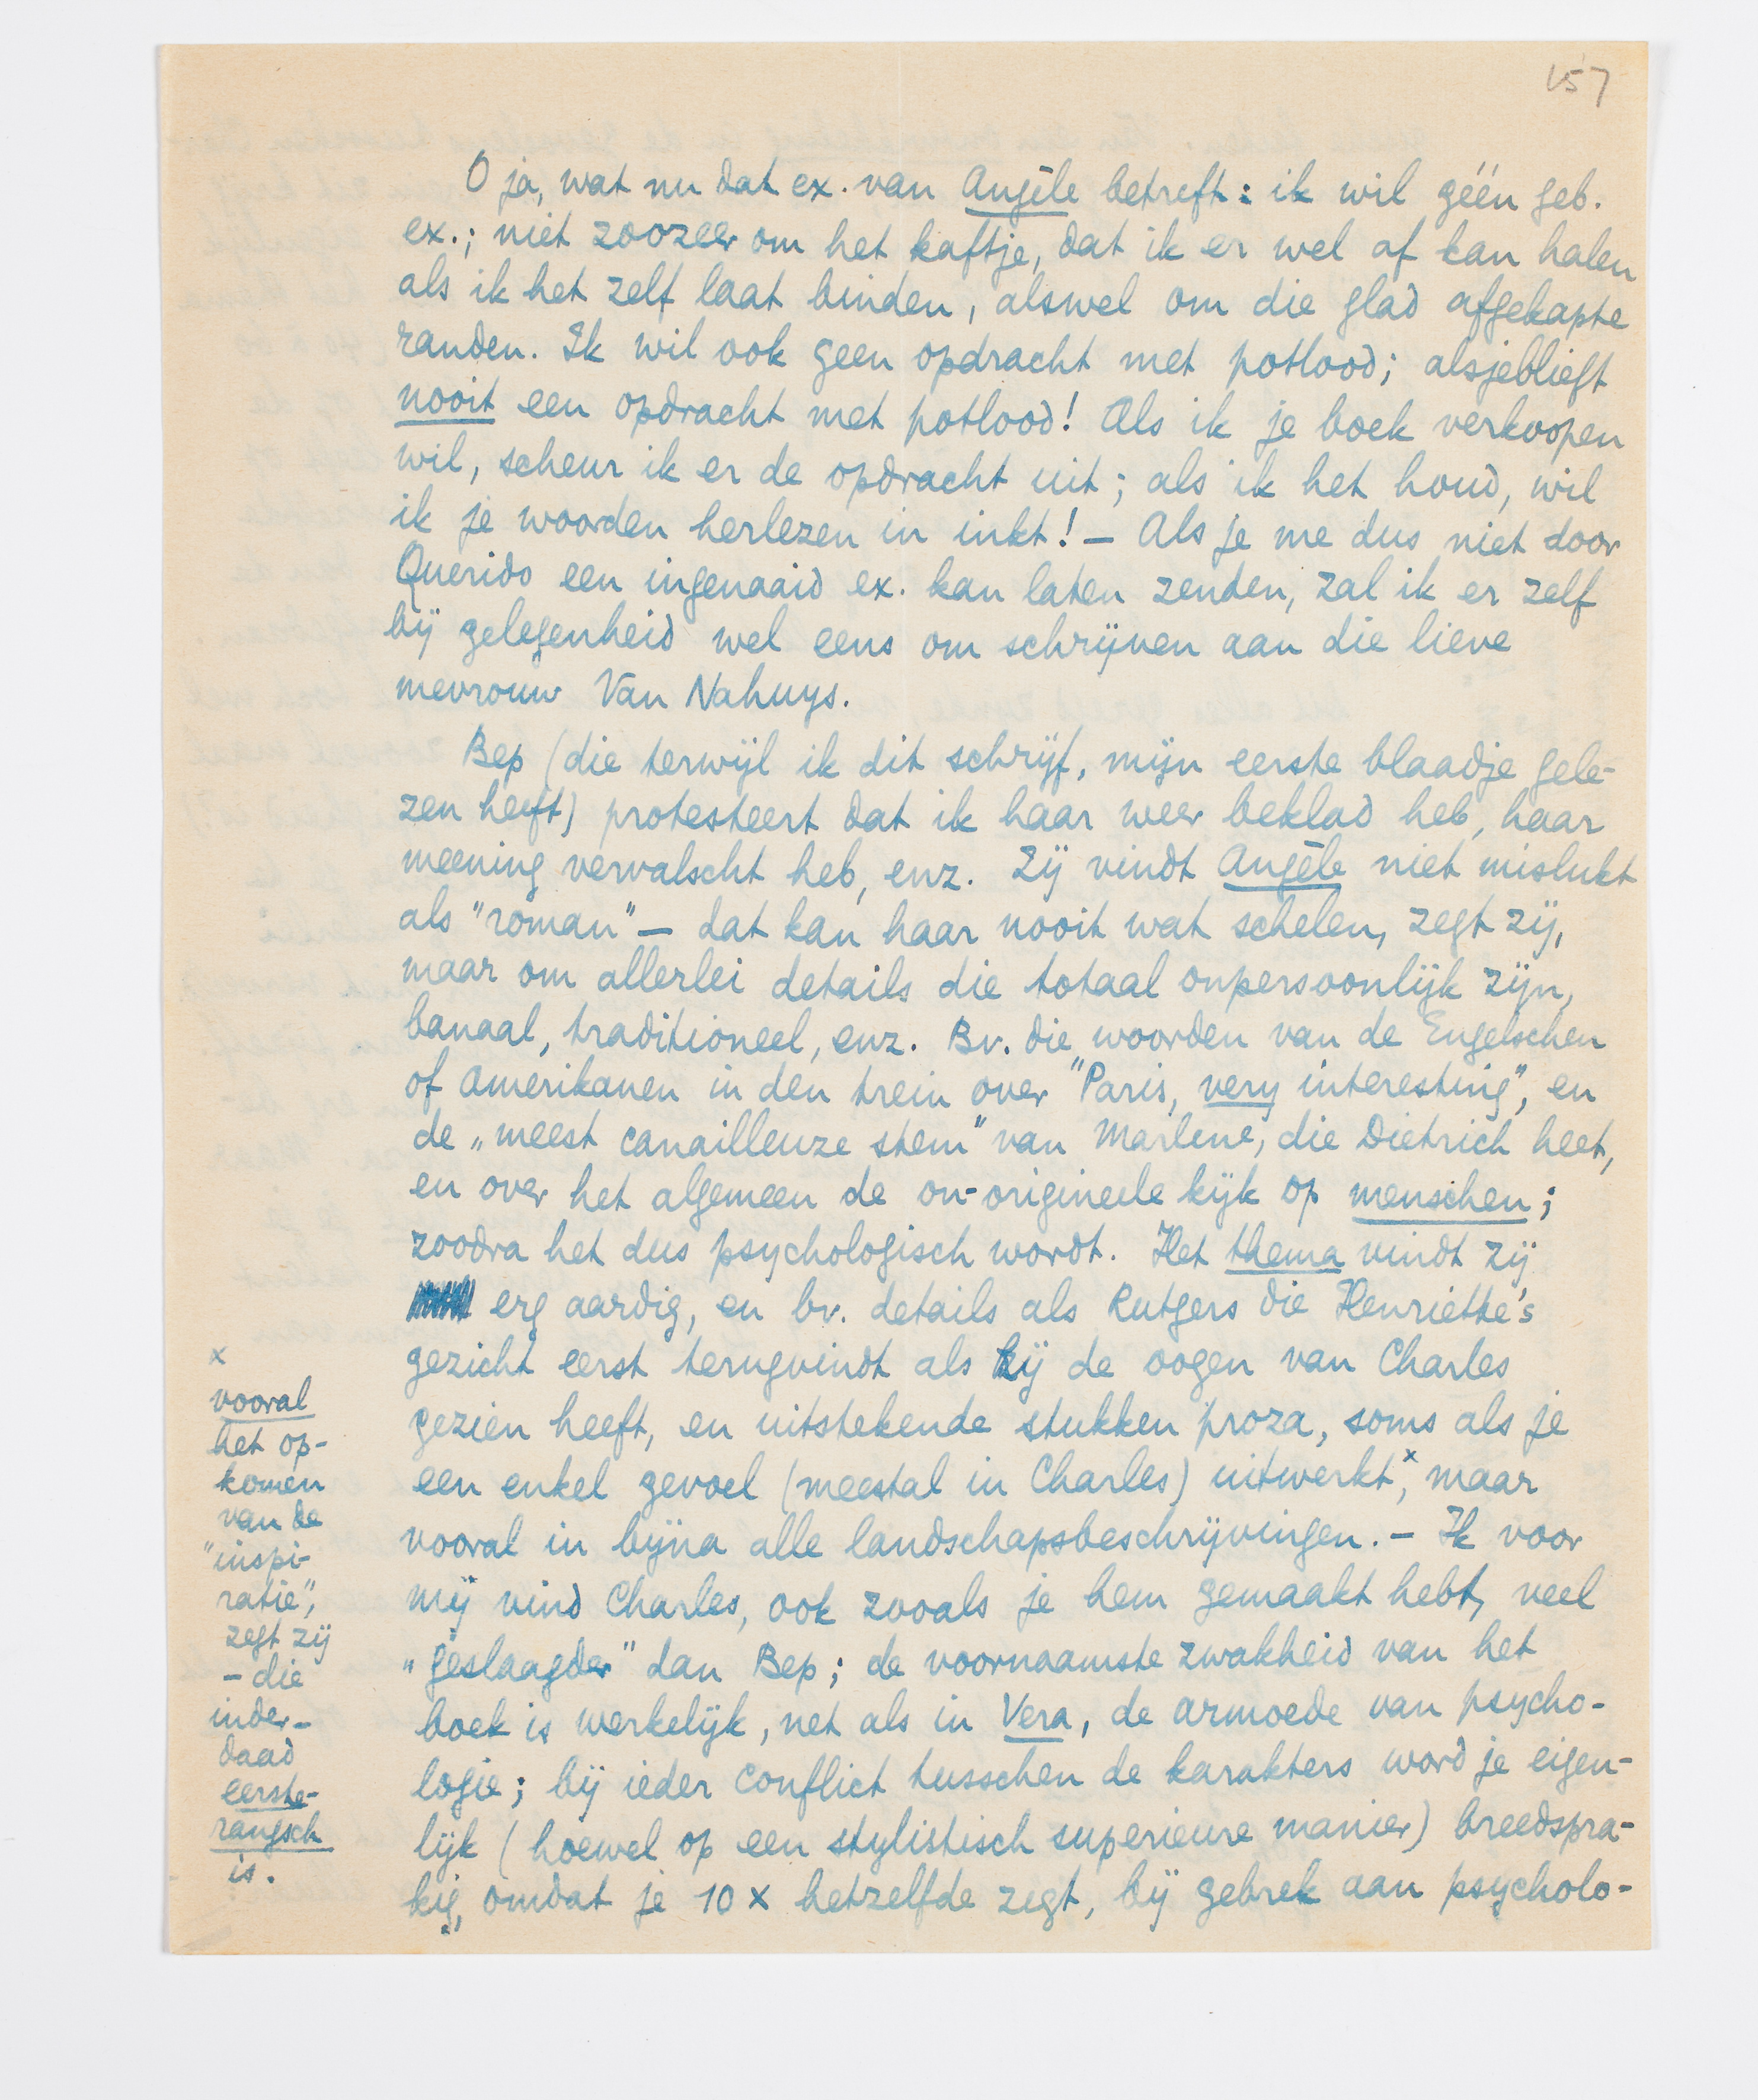 157
O ja, wat nu dat ex. van Angèle betreft: ik wil géén geb.
ex.; niet zoozeer om het kaftje, dat ik er wel af kan halen
als ik het zelf laat binden, alswel om die glad afgekapte
randen. Ik wil ook geen opdracht met potlood; alsjeblieft
nooit een opdracht met potlood! Als ik je boek verkoopen
wil, scheur ik er de opdracht uit; als ik het houd, wil
ik je woorden herlezen in inkt! — Als je me dus niet door
Querido een ingenaaid ex. kan laten zenden, zal ik er zelf
bij gelegenheid wel eens om schrijven aan die lieve
mevrouw Van Nahuys.
Bep (die terwijl ik dit schrijf, mijn eerste blaadje gele-
zen heeft) protesteert dat ik haar weer beklad heb, haar
meening vervalscht heb, enz. Zij vindt Angèle niet mislukt
als "roman" — dat kan haar nooit wat schelen, zegt zij,
maar om allerlei details die totaal onpersoonlijk zijn,
banaal, traditioneel, enz. Bv. die woorden van de Engelschen
of Amerikanen in den trein over "Paris, very interesting", en
de „meest canailleuze stem" van Marlene, die Dietrich heet,
en over het algemeen de on-origineele kijk op menschen;
zoodra het dus psychologisch wordt. Het thema vindt zij
erg aardig, en bv. details als Rutgers die Henriette's
gezicht eerst terugvindt als hij de oogen van Charles
gezien heeft, en uitstekende stukken proza, soms als je
een enkel gevoel (meestal in Charles) uitwerkt,x maar
vooral in bijna alle landschapsbeschrijvingen. — Ik voor
mij vind Charles, ook zooals je hem gemaakt hebt, veel
„geslaagder" dan Bep; de voornaamste zwakheid van het
boek is werkelijk, net als in Vera, de armoede van psycho-
logie; bij ieder conflict tusschen de karakters word je eigen-
lijk (hoewel op een stylistisch superieure manier) breedspra-
kig, omdat je 10 x hetzelfde zegt, bij gebrek aan psycholo-
x
vooral
het op-
komen
van de
"inspi-
ratie",
zegt zij
– die
inder-
daad
eerste-
rangsch
is.